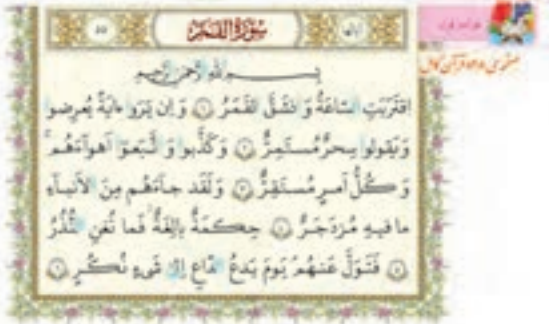 سورة القمر
٥٥
بسم الله الرحمن الرحیم
اِقتَرَبَتِ السّاعَةُ وَ انشَقَّ القَمَرُ ۱ وَ اِن یَرَوا ءایَةً یُعرِضوا
وَ یَقولوا سِحرٌ مُستَمِرٌّ ۲ وَ کَذَّبوا وَ اتَّبَعوا اَهواءَهُم
وَ کُلُّ اَمرٍ مُستَقِرٌّ ۳ وَ لَقَد جاءَهُم مِنَ الاَنباءِ
ما فیهِ مُزدَجَرٌ ۴ حِکمَةٌ بالِغَةٌ فَما تُغنِ النُّذُرُ
۵ فَتَوَلَّ عَنهُم یَومَ یَدعُ الدّاعِ اِلیٰ شَیءٍ نُکُرٍ ۶